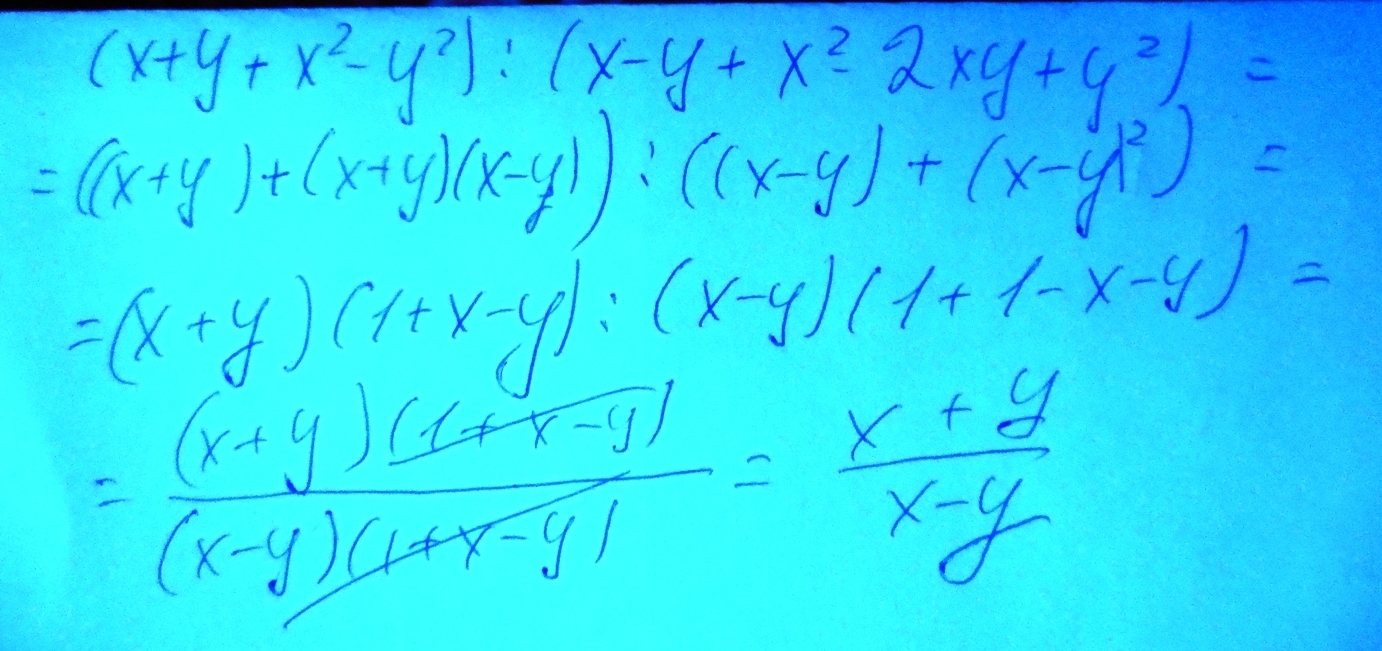 (x+y+x²-y²):(x-y+x²-2xy+y²)=
=((x+y)+(x+y)(x-y)):((x-y)+(x-y)²)=
=(x+y)(1+x-y):(x-y)(1+1-x-y)=
=(x+y)(1+x-y)/(x-y)(1+x-y)=x+y/x-y